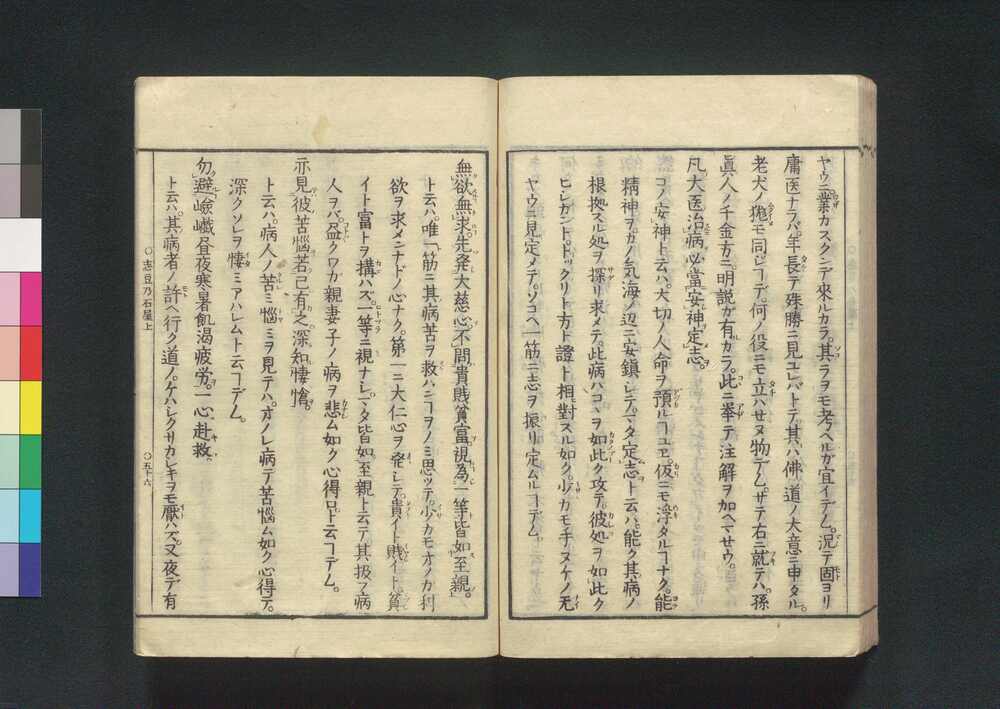 ヤウニ業カスクンデ來ルカラ。其ラヲモ考ヘルガ宜イデム。況テ固ヨリ
庸医ナラバ。年長テ殊勝ニ見ユレバトテ。其ハ佛道ノ大意ニ申タル。
老犬ノ㹨モ同ヒヿデ。何ノ役ニモ立ハセヌ物デム。サテ右ニ就テハ。孫
眞人ノ千金方ニ。明説ガ有ルカラ。此ニ挙テ注解ヲ加ヘマセウ。
凡大医治病。必當安神定志。
コノ安神ト云ハ。大切ノ人命ヲ預ルヿユヱ。仮ニモ浮タルヿナク。能
精神ヲ。カノ気海ノ辺ニ安鎮シテ。マタ定志ト云ハ。能ク其病ノ
根拠スル処ヲ探リ求メテ。此病ハコヽヲ如此ク攻テ。彼処ヲ如此ク
ヒレガント。トックリト方ト證ト相對スル如ク。少カモ手ヌケノ无
ヤウニ見定メテ。ソコヘ一筋ニ志ヲ振リ定ムルヿデム。
無欲無求。先発大慈心。不問貴賎貧富。視為一等。皆如至親。
ト云ハ。唯一筋ニ其病苦ヲ救ハンヿヲノミ思ッテ。少カモオノカ利
欲ヲ求メンナドノ心ナク。第一ニ大仁心ヲ発シテ。貴イト賎イト。貧
イト富トヲ構ハズ。一等ニ視ナシ。マタ皆如至親ト云テ。其扱フ病
人ヲバ。尽クワカ親妻子ノ病ヲ悲ム如ク心得ロト云フヿデム。
亦見彼苦惱。若己有之。深知悽愴。
ト云ハ。病人ノ苦ミ惱ミヲ見テハ。オノレ病テ苦惱ム如ク心得テ。
深クソレヲ悽ミアハレムト云ヿデム。
勿避嶮巇昼夜寒暑飢渇疲労。一心赴救。
ト云ハ。其病者ノ許ヘ行ク道ノ。ケハシクサカシキヲモ厭ハズ。又夜デ有
○志豆乃石屋上
○五十六